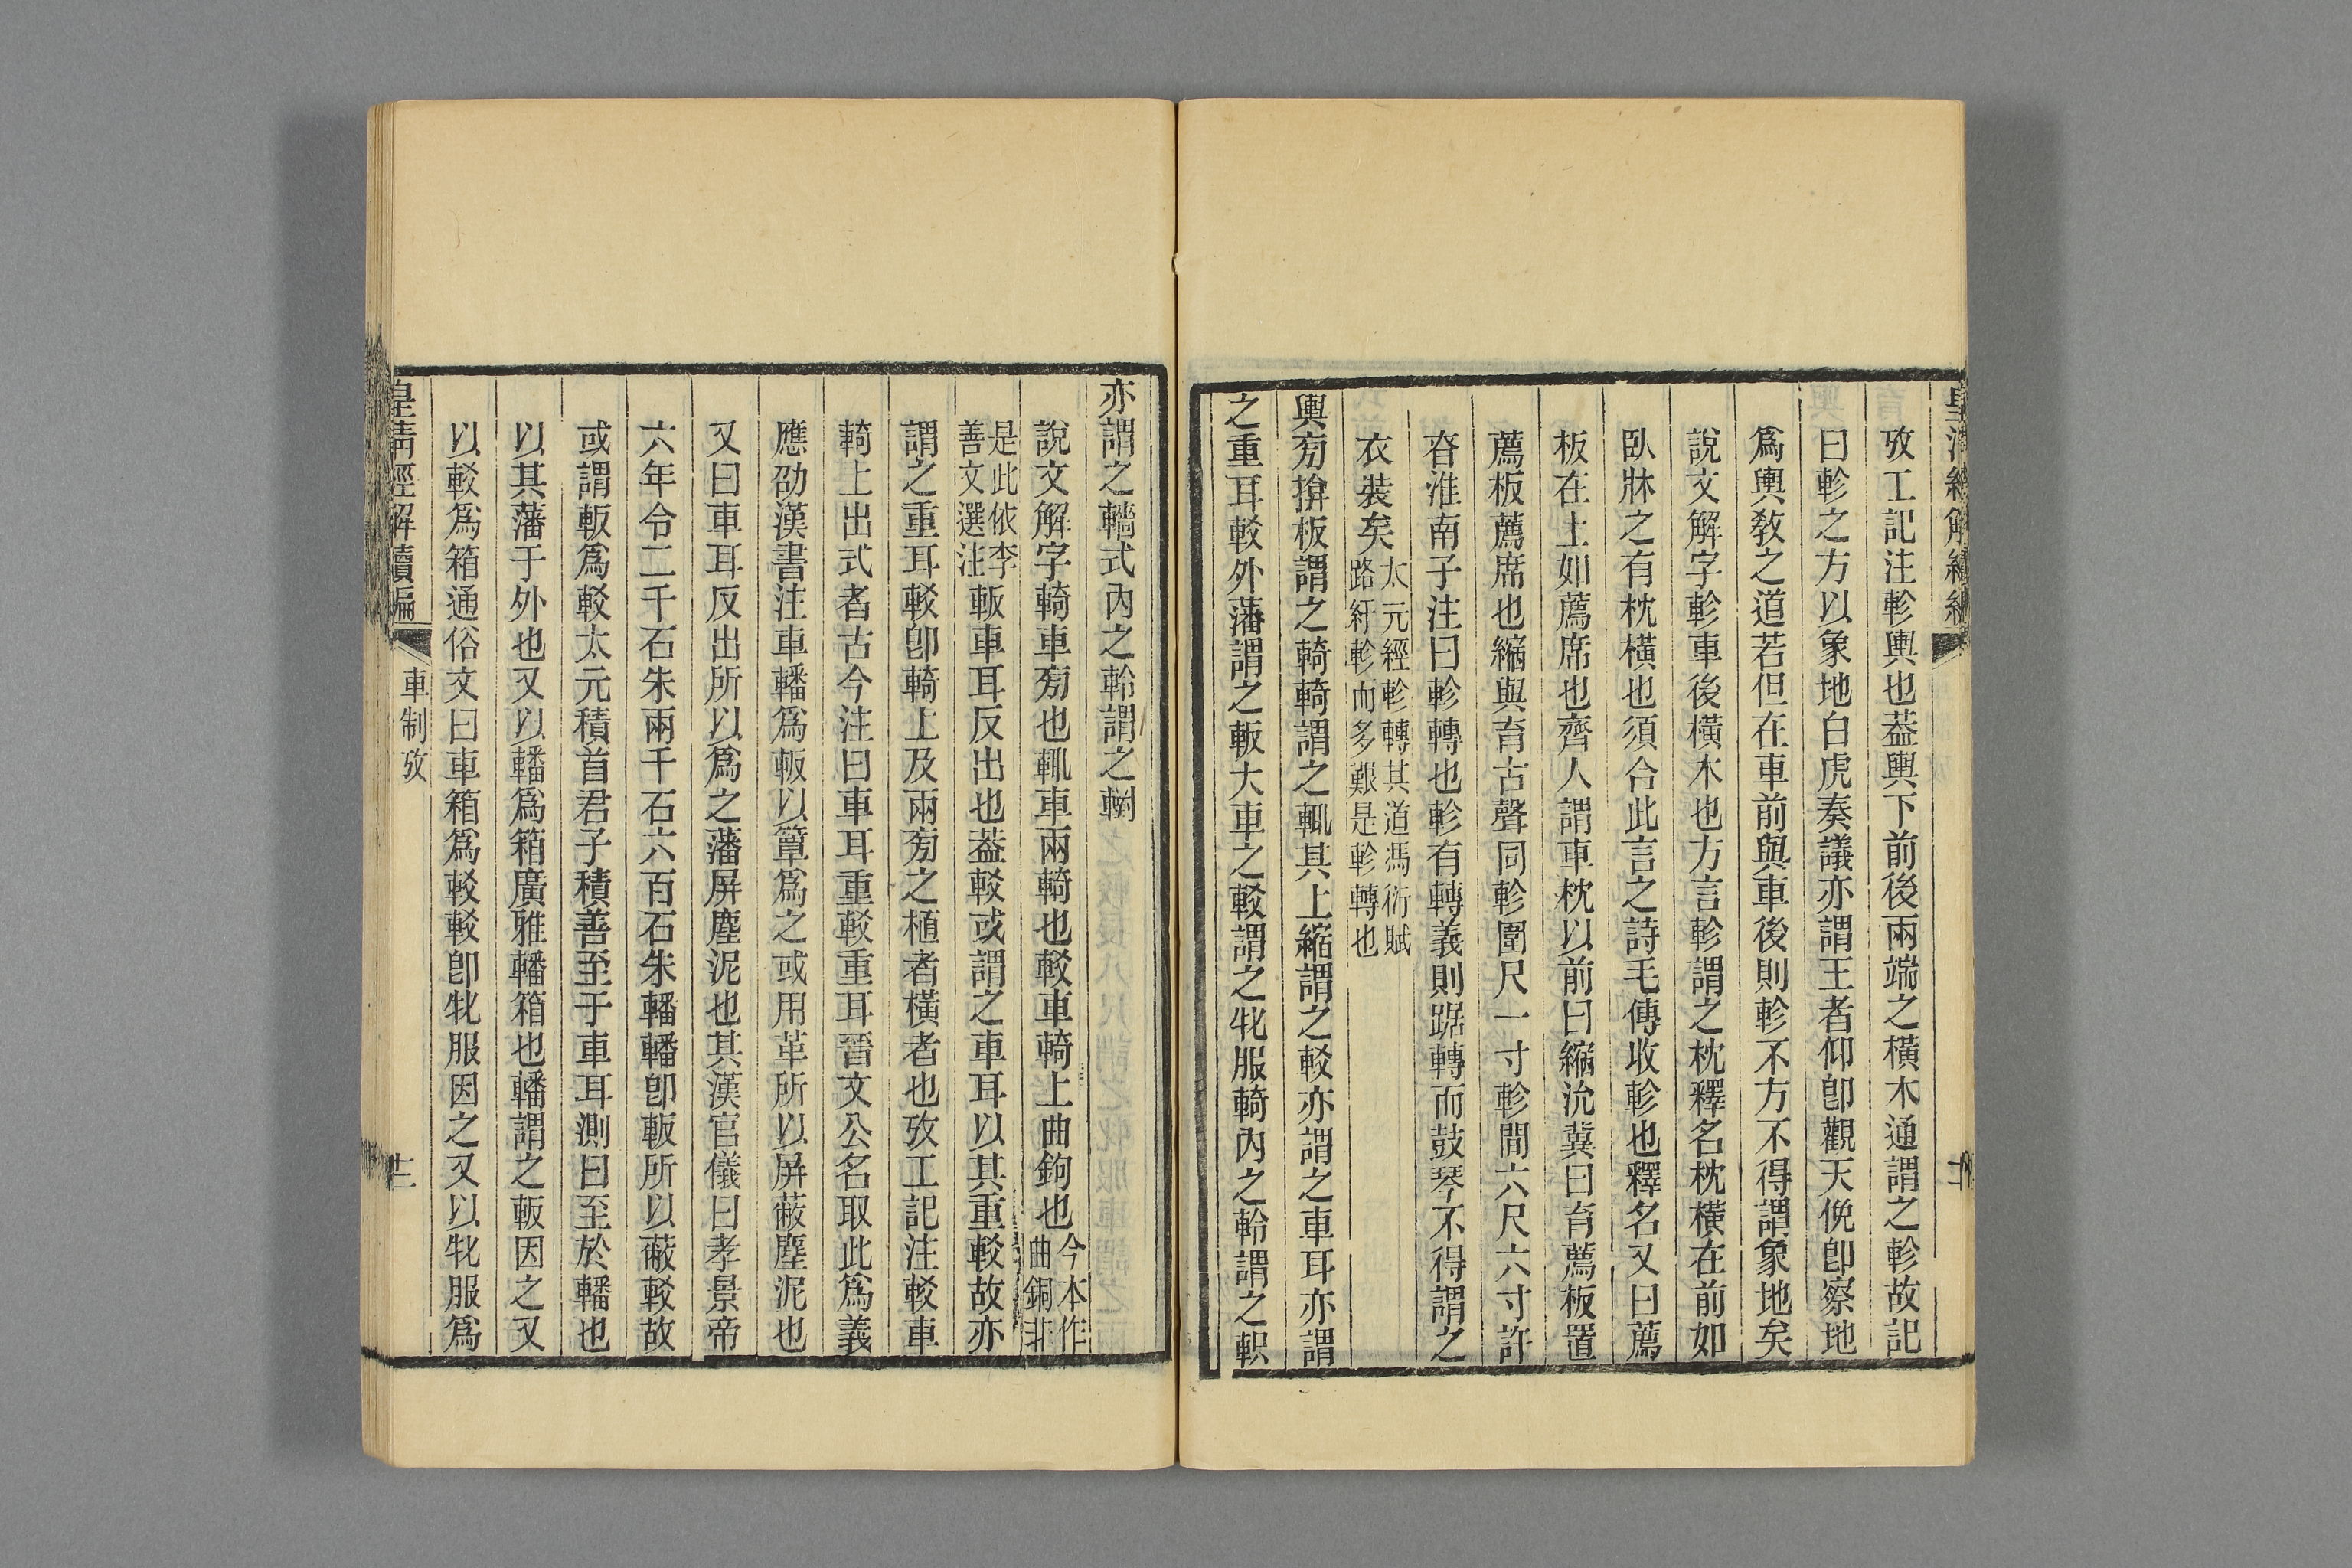 攷工記注軫輿也葢輿下前後兩端之橫木通謂之軫故記
曰軫之方以象地白虎奏議亦謂王者仰卽觀天俛卽察地
爲輿敎之道若但在車前與車後則軫不方不得謂象地矣
說文解字軫車後橫木也方言軫謂之枕釋名枕橫在前如
臥牀之有枕橫也須合此言之詩毛傳收軫也釋名又曰薦
板在上如薦席也齊人謂車枕以前曰縮沇冀曰育薦板置
薦板薦席也縮與育古聲同軫圍尺一寸軫間六尺六寸許
昚淮南子注曰軫轉也軫有轉義則踞轉而鼓琴不得謂之
衣裝矣太元經軫轉其道馮衍賦
路紆軫而多艱是軫轉也
輿㫄揜板謂之輢輢謂之輒其上縮謂之較亦謂之車耳亦謂
之重耳較外藩謂之軓大車之較謂之牝服輢內之軨謂之軹
亦謂之轖式內之軨謂之轛
說文解字輢車㫄也輒車兩輢也較車輢上曲鉤也今本作
曲銅非
是此依李
善文選注軓車耳反出也葢較或謂之車耳以其重較故亦
謂之重耳較卽輢上及兩㫄之植者橫者也攷工記注較車
輢上出式者古今注曰車耳重較重耳晉文公名取此爲義
應劭漢書注車轓爲軓以簟爲之或用革所以屏蔽塵泥也
又曰車耳反出所以爲之藩屏塵泥也其漢官儀曰孝景帝
六年令二千石朱兩千石六百石朱轓轓卽軓所以蔽較故
或謂軓爲較太元積首君子積善至于車耳測曰至於轓也
以其藩于外也又以轓爲箱廣雅轓箱也轓謂之軓因之又
以較爲箱通俗文曰車箱爲較較卽牝服因之又以牝服爲
皇淸經解續編
車制攷
十二